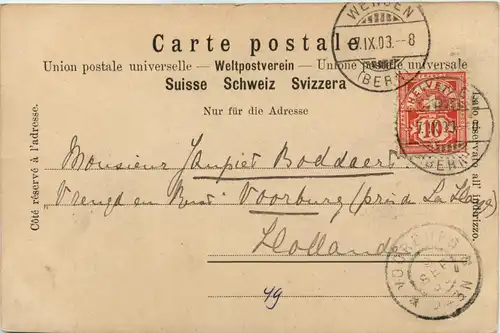 WENGEN
Carte postale
7.IX.03.-8
Union postale universelle — Weltpostverein — Unione postale universale
(BERN)
Suisse Schweiz Svizzera
HELVETIA
10
Nur für die Adresse
(BERN)
Côté réservé à l'adresse.
Lato riservato all'indirizzo.
Monsieur Janpiet Boddaert
"Vreugd en Rust" Voorburg (près de La Haye)
Hollande
VOORBURG
SEP
49